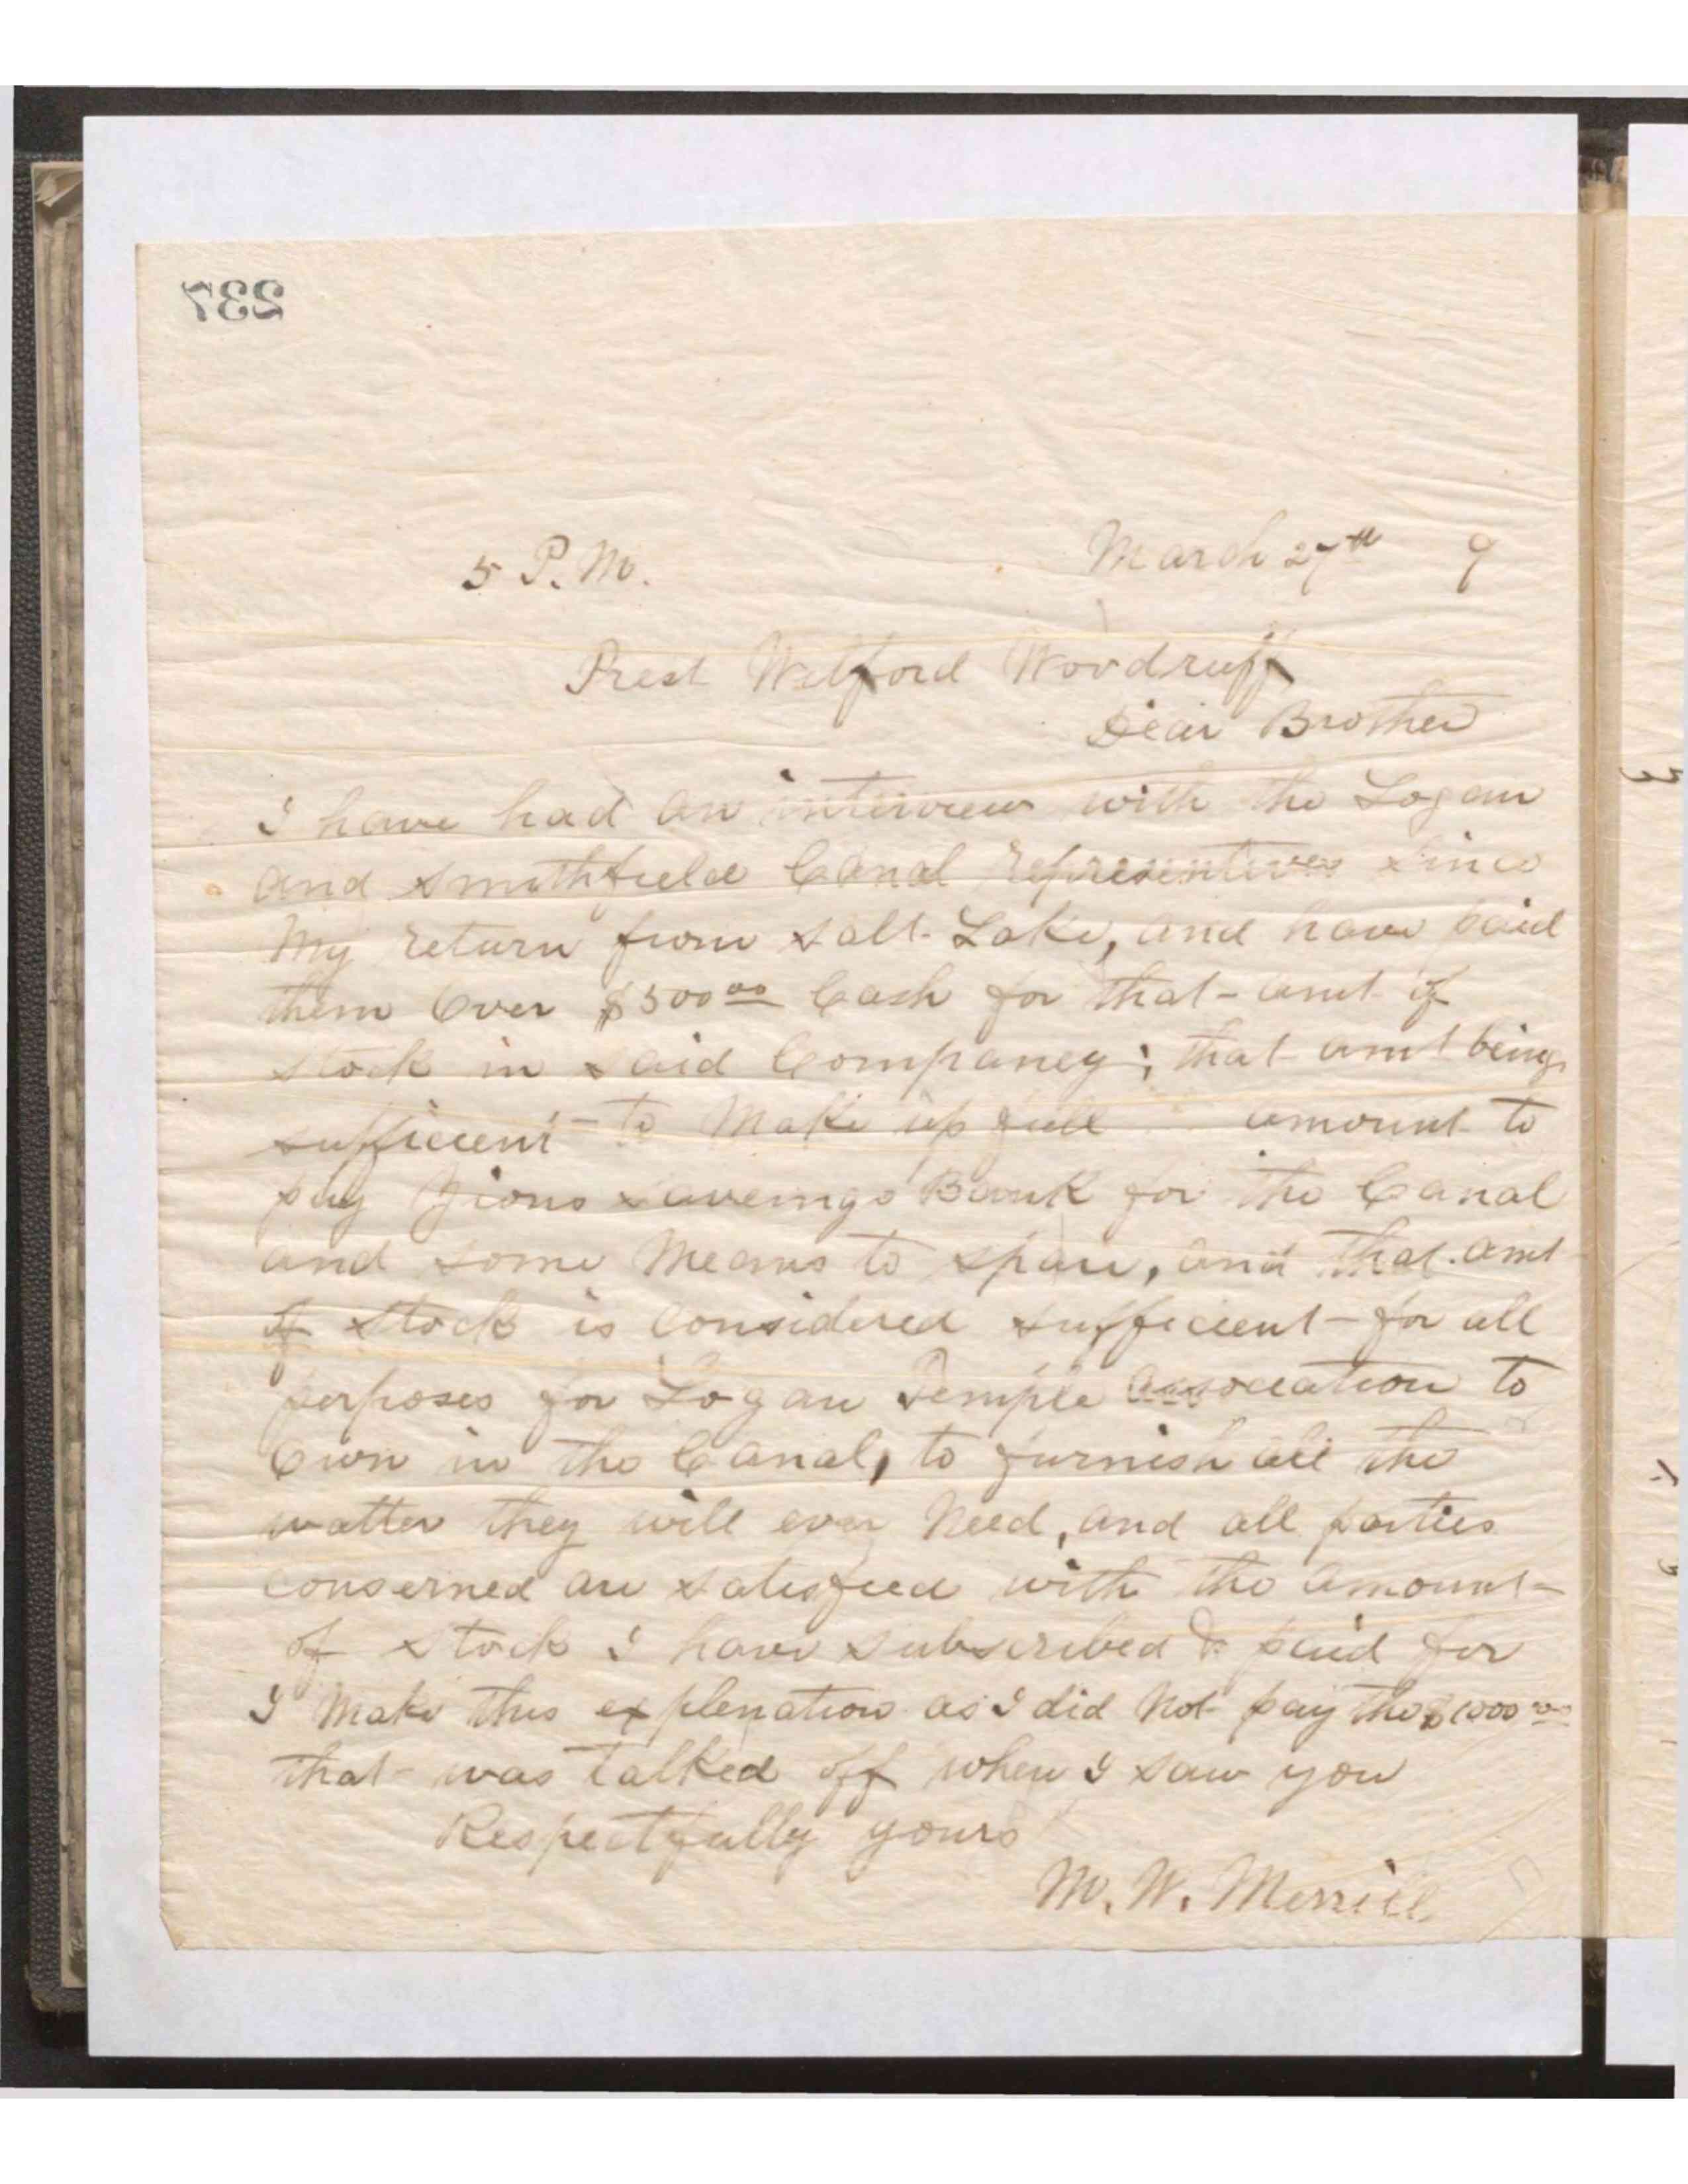 237
5 P.M. March 27th 9
Prest Wilford Woodruff
Dear Brother
I have had an interview with the Logan
and Smithfield Canal representives since
My return from Salt Lake, and have paid
them Over $500.00 Cash for that amt of
stock in said Companey; that amt being
sufficient to Make up full amount to
pay Zions Saveings Bank for the Canal
and some Means to spare, and that amt
of stock is Considered sufficient for all
perposes for Logan Temple association to
Own in the Canal, to furnish all the
watter they will ever Need, and all parties
conserned are satisfied with the amount
of stock I have subscribed & paid for
I Make this explenation as I did Not pay the $1000.00
that was talked off when I saw you
Respectfully yours
M. W. Merrill